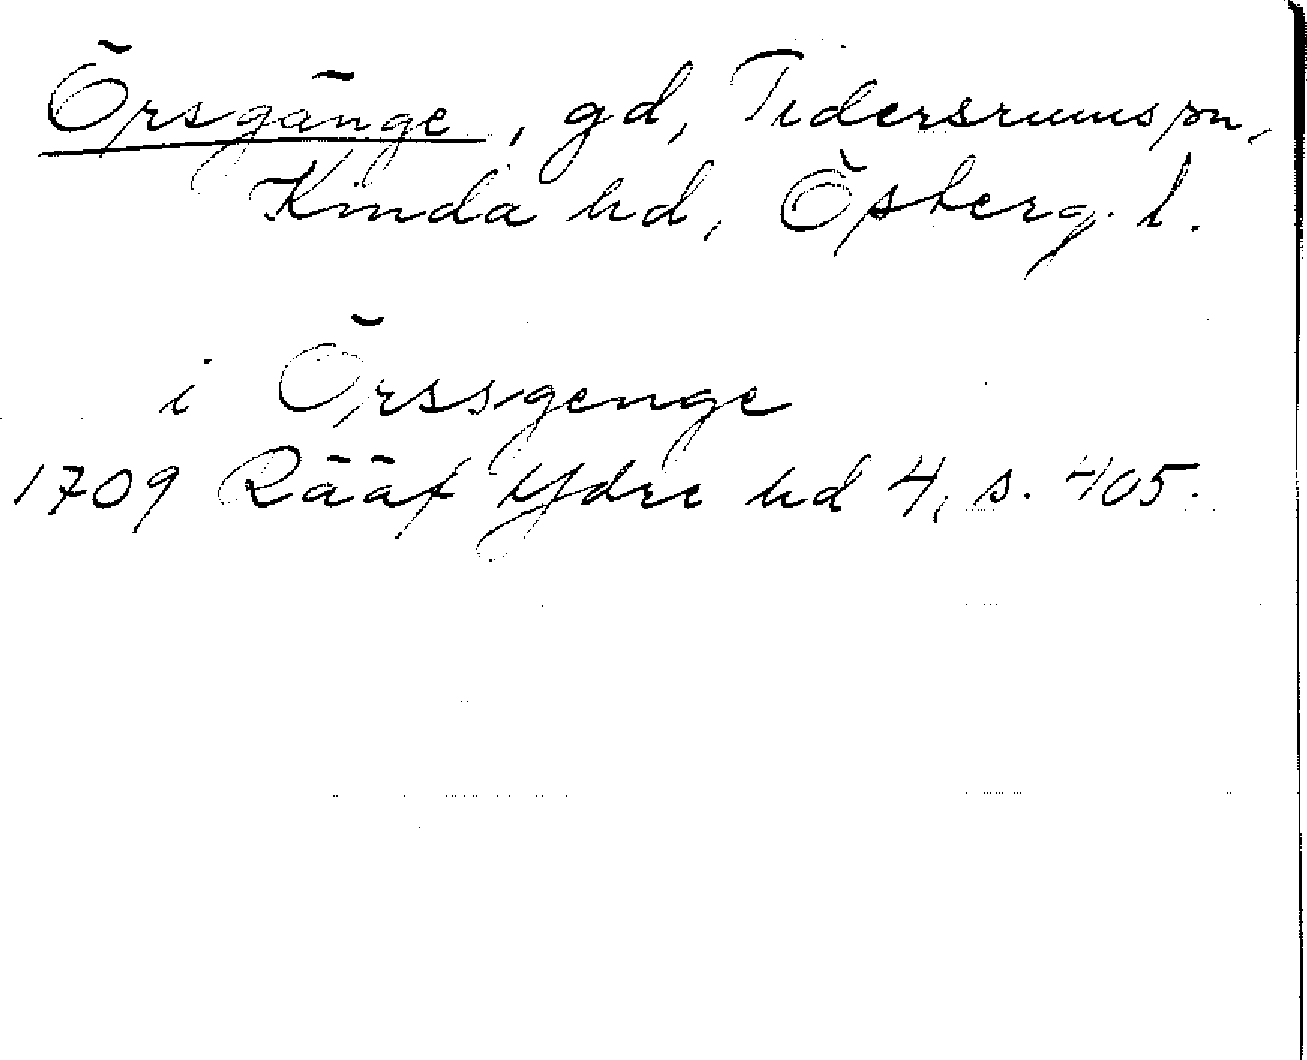 Örsgänge, gd, Tidersrums sn,
Kinda hd, Östergˑ l.
i Örssgenge
1709 Rääf Ydre hd 4, s. 405.